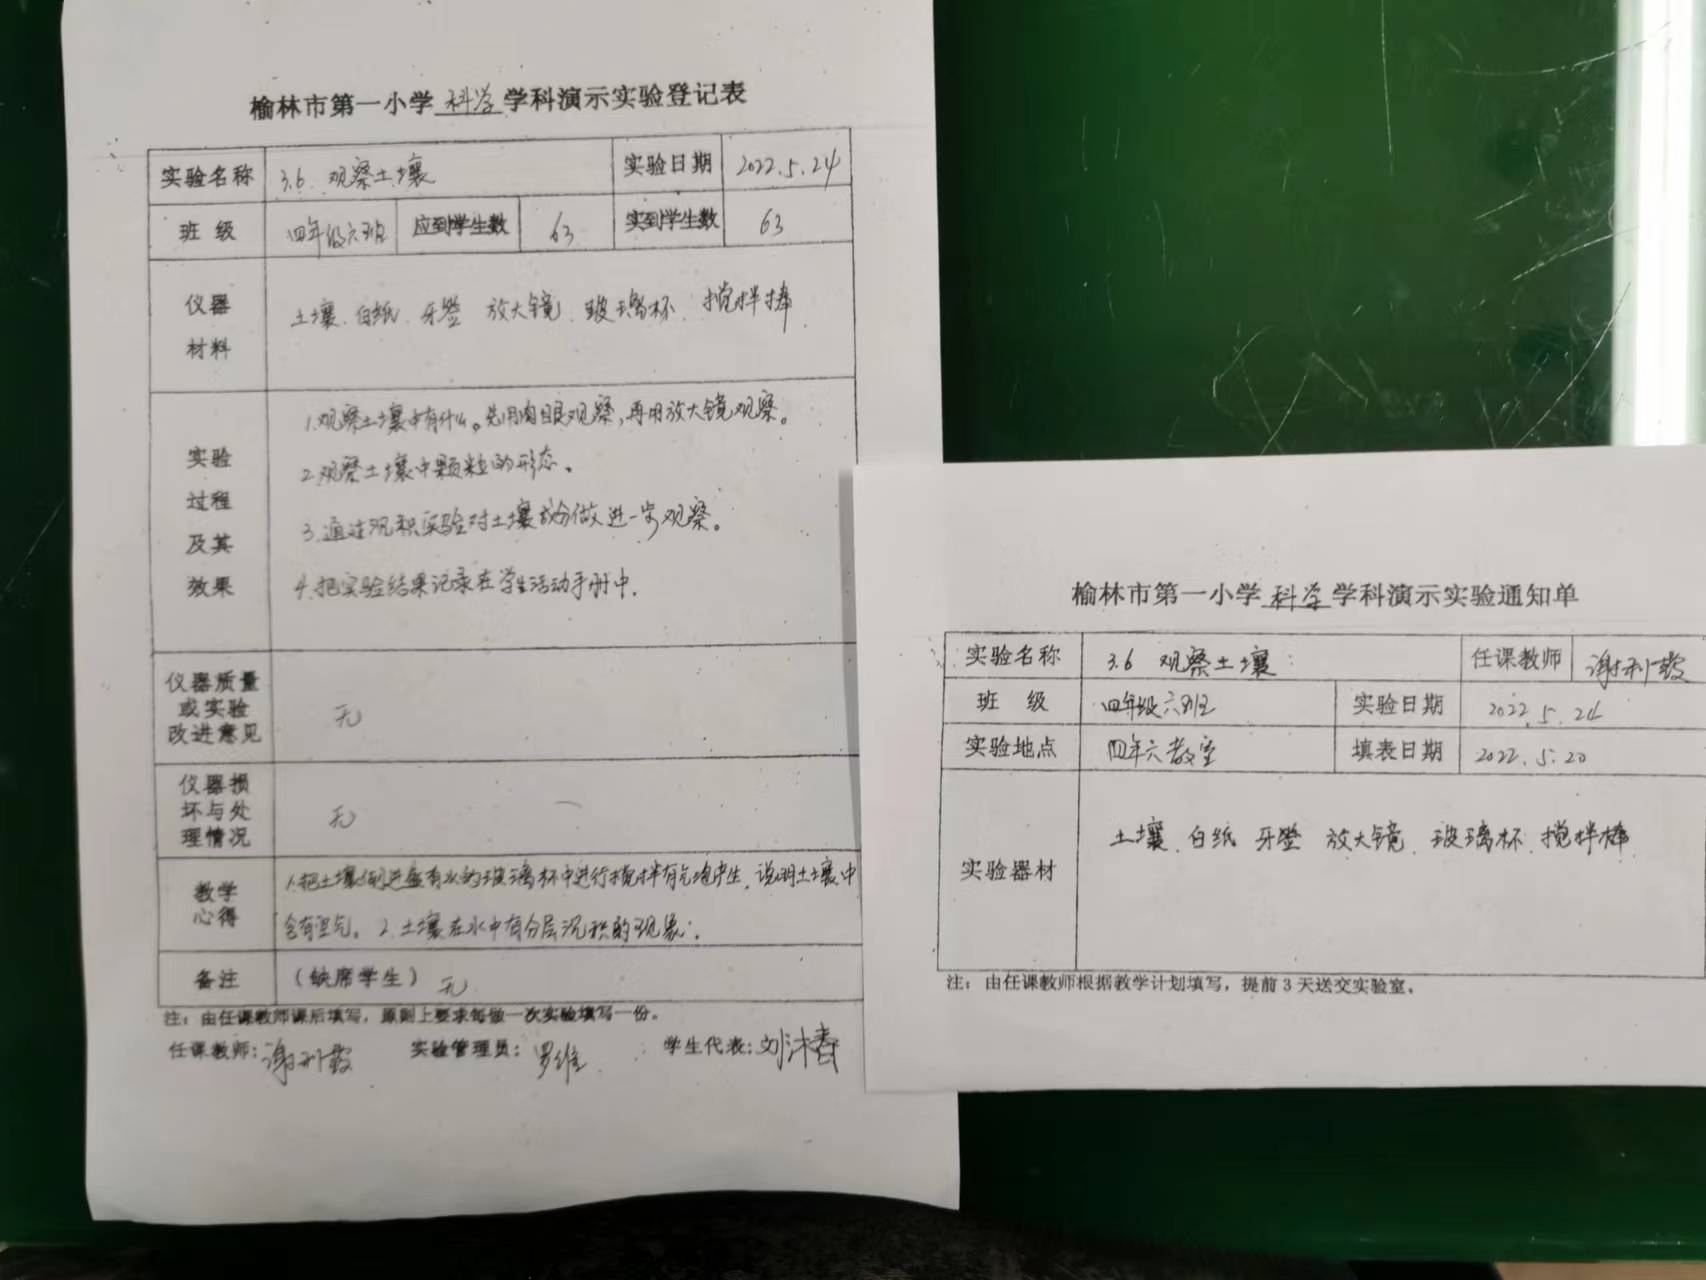 榆林市第一小学 科学 学科演示实验登记表
实验名称 3.6 观察土壤 实验日期 2022.5.24
班 级 四年级六班 应到学生数 63 实到学生数 63
仪器
材料
土壤、白纸、牙签 放大镜、玻璃杯、搅拌棒
实验
过程
及其
效果
1.观察土壤中有什么。先用肉眼观察,再用放大镜观察。
2.观察土壤中颗粒的形态。
3.通过沉积实验对土壤成分做进一步观察。
4.把实验结果记录在学生活动手册中.
仪器质量
或实验
改进意见
无
仪器损
坏与处
理情况
无
教学
心得
1.把土壤倒进盛有水的玻璃杯中进行搅拌有气泡产生,说明土壤中
含有空气。2.土壤在水中有分层沉积的现象.
备注 (缺席学生) 无
注:由任课教师课后填写,原则上要求每做一次实验填写一份。
任课教师: 实验管理员:罗维 学生代表:刘沐春
榆林市第一小学 科学 学科演示实验通知单
实验名称 3.6 观察土壤 任课教师
班 级 四年级六班 实验日期 2022.5.24
实验地点 四年六教室 填表日期 2022.5.20
实验器材
土壤、白纸 牙签 放大镜、玻璃杯、搅拌棒
注:由任课教师根据教学计划填写,提前3天送交实验室。